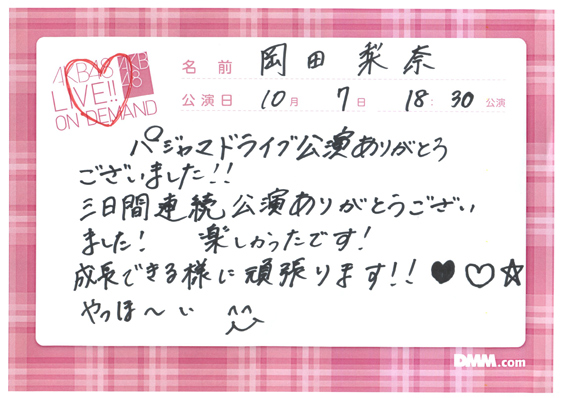 AKB48
LIVE!!
ON DEMAND
AKB
48
名前 岡田梨奈
公演日 10月 7日 18:30公演
パジャマドライブ公演ありがとう
ございました!!
三日間連続公演ありがとうござい
ました! 楽しかったです!
成長できる様に頑張ります!!♥♡☆
やっほ〜い
DMM.com